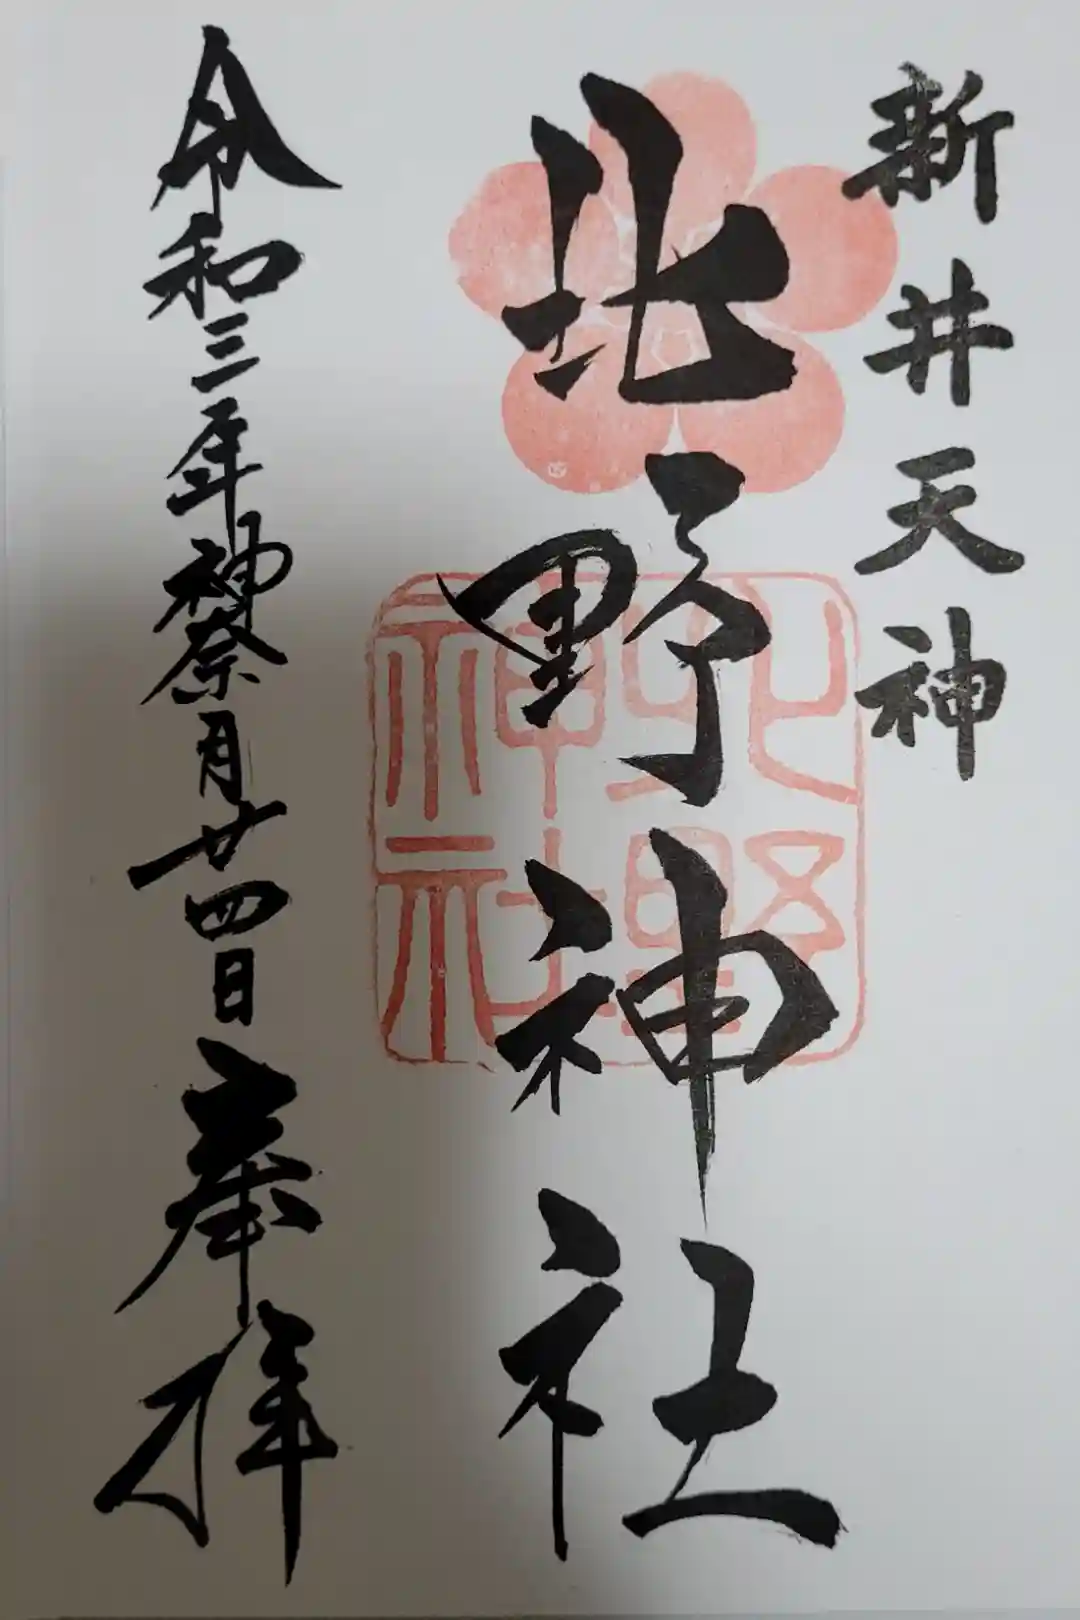 新井天神
北野神社
令和三年神無月廿四日奉拝
北野
神社